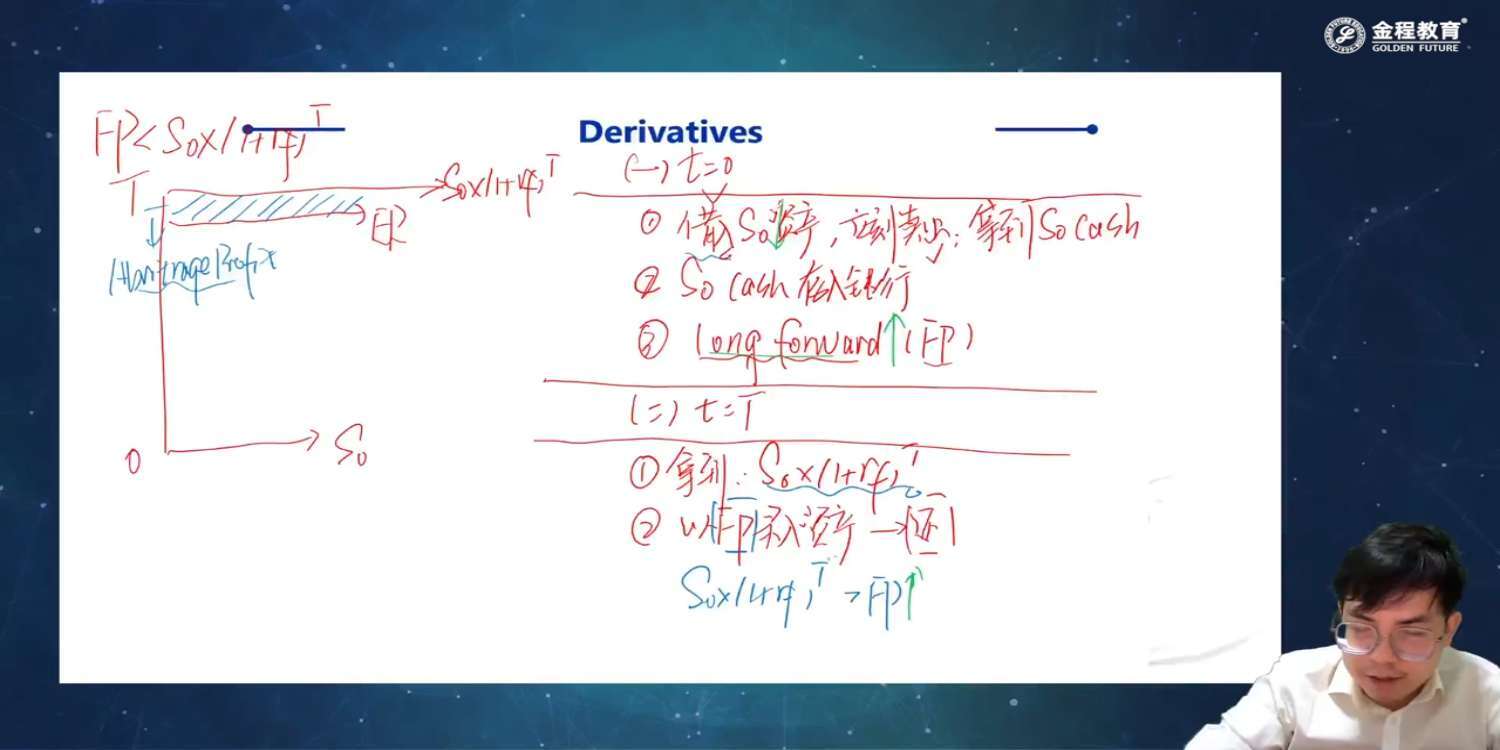 金程教育
GOLDEN FUTURE
Derivatives
FP < S₀×(1+rf)^T
T
S₀×(1+rf)^T
FP
Arbitrage Profit
0
S₀
(一) t=0
① 借入S₀资产，立刻卖出：拿到S₀ cash
② S₀ cash 存入银行
③ long forward↑(FP)
(二) t=T
① 拿到：S₀×(1+rf)^T
② 以FP买入资产→还
S₀×(1+rf)^T > FP↑